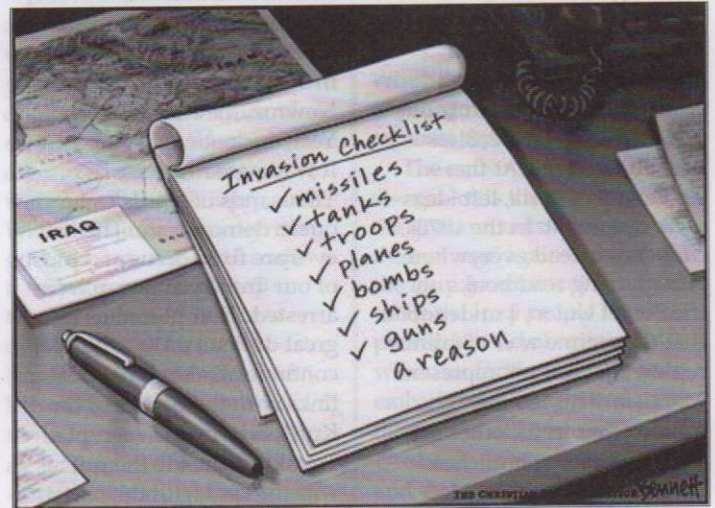 Invasion Checklist
✓ missiles
✓ tanks
✓ troops
✓ planes
✓ bombs
✓ ships
✓ guns
a reason
IRAQ
THE CHRISTIAN
Bennett